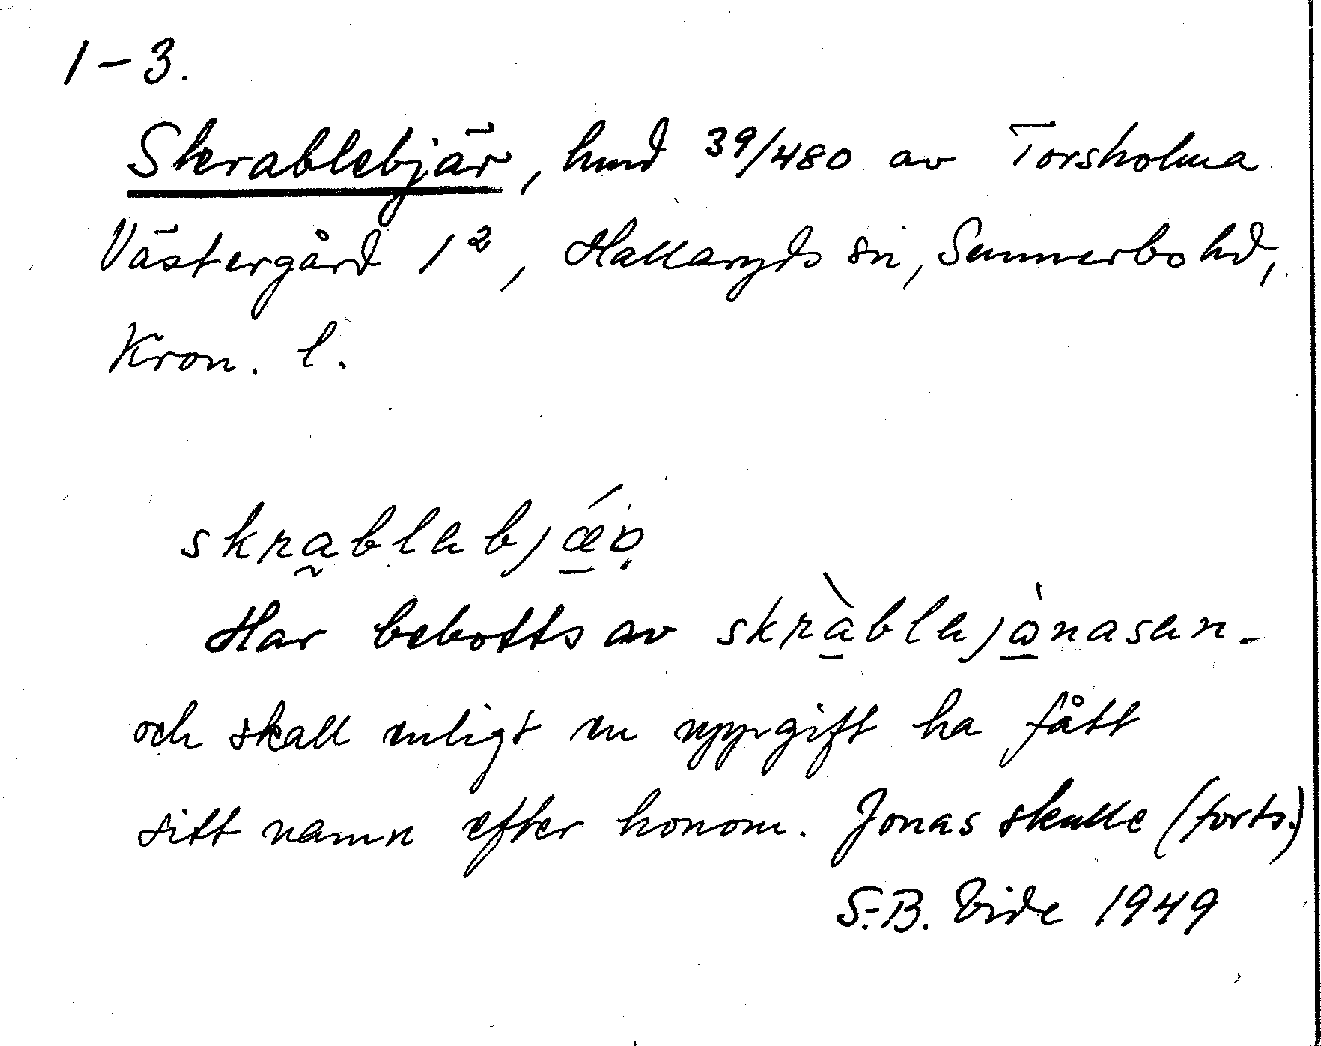 1-3.
Skrablebjär, hmd 39/480 av Torsholma
Västergård 1², Hallaryds sn, Sunnerbo hd,
Kron. l.
skra̰blabjǽ̱ṛ
Har bebotts av skrà̱blajò̱nasan.
och skall enligt en uppgift ha fått
sitt namn efter honom. Jonas skulle (forts.)
S.-B. Vide 1949